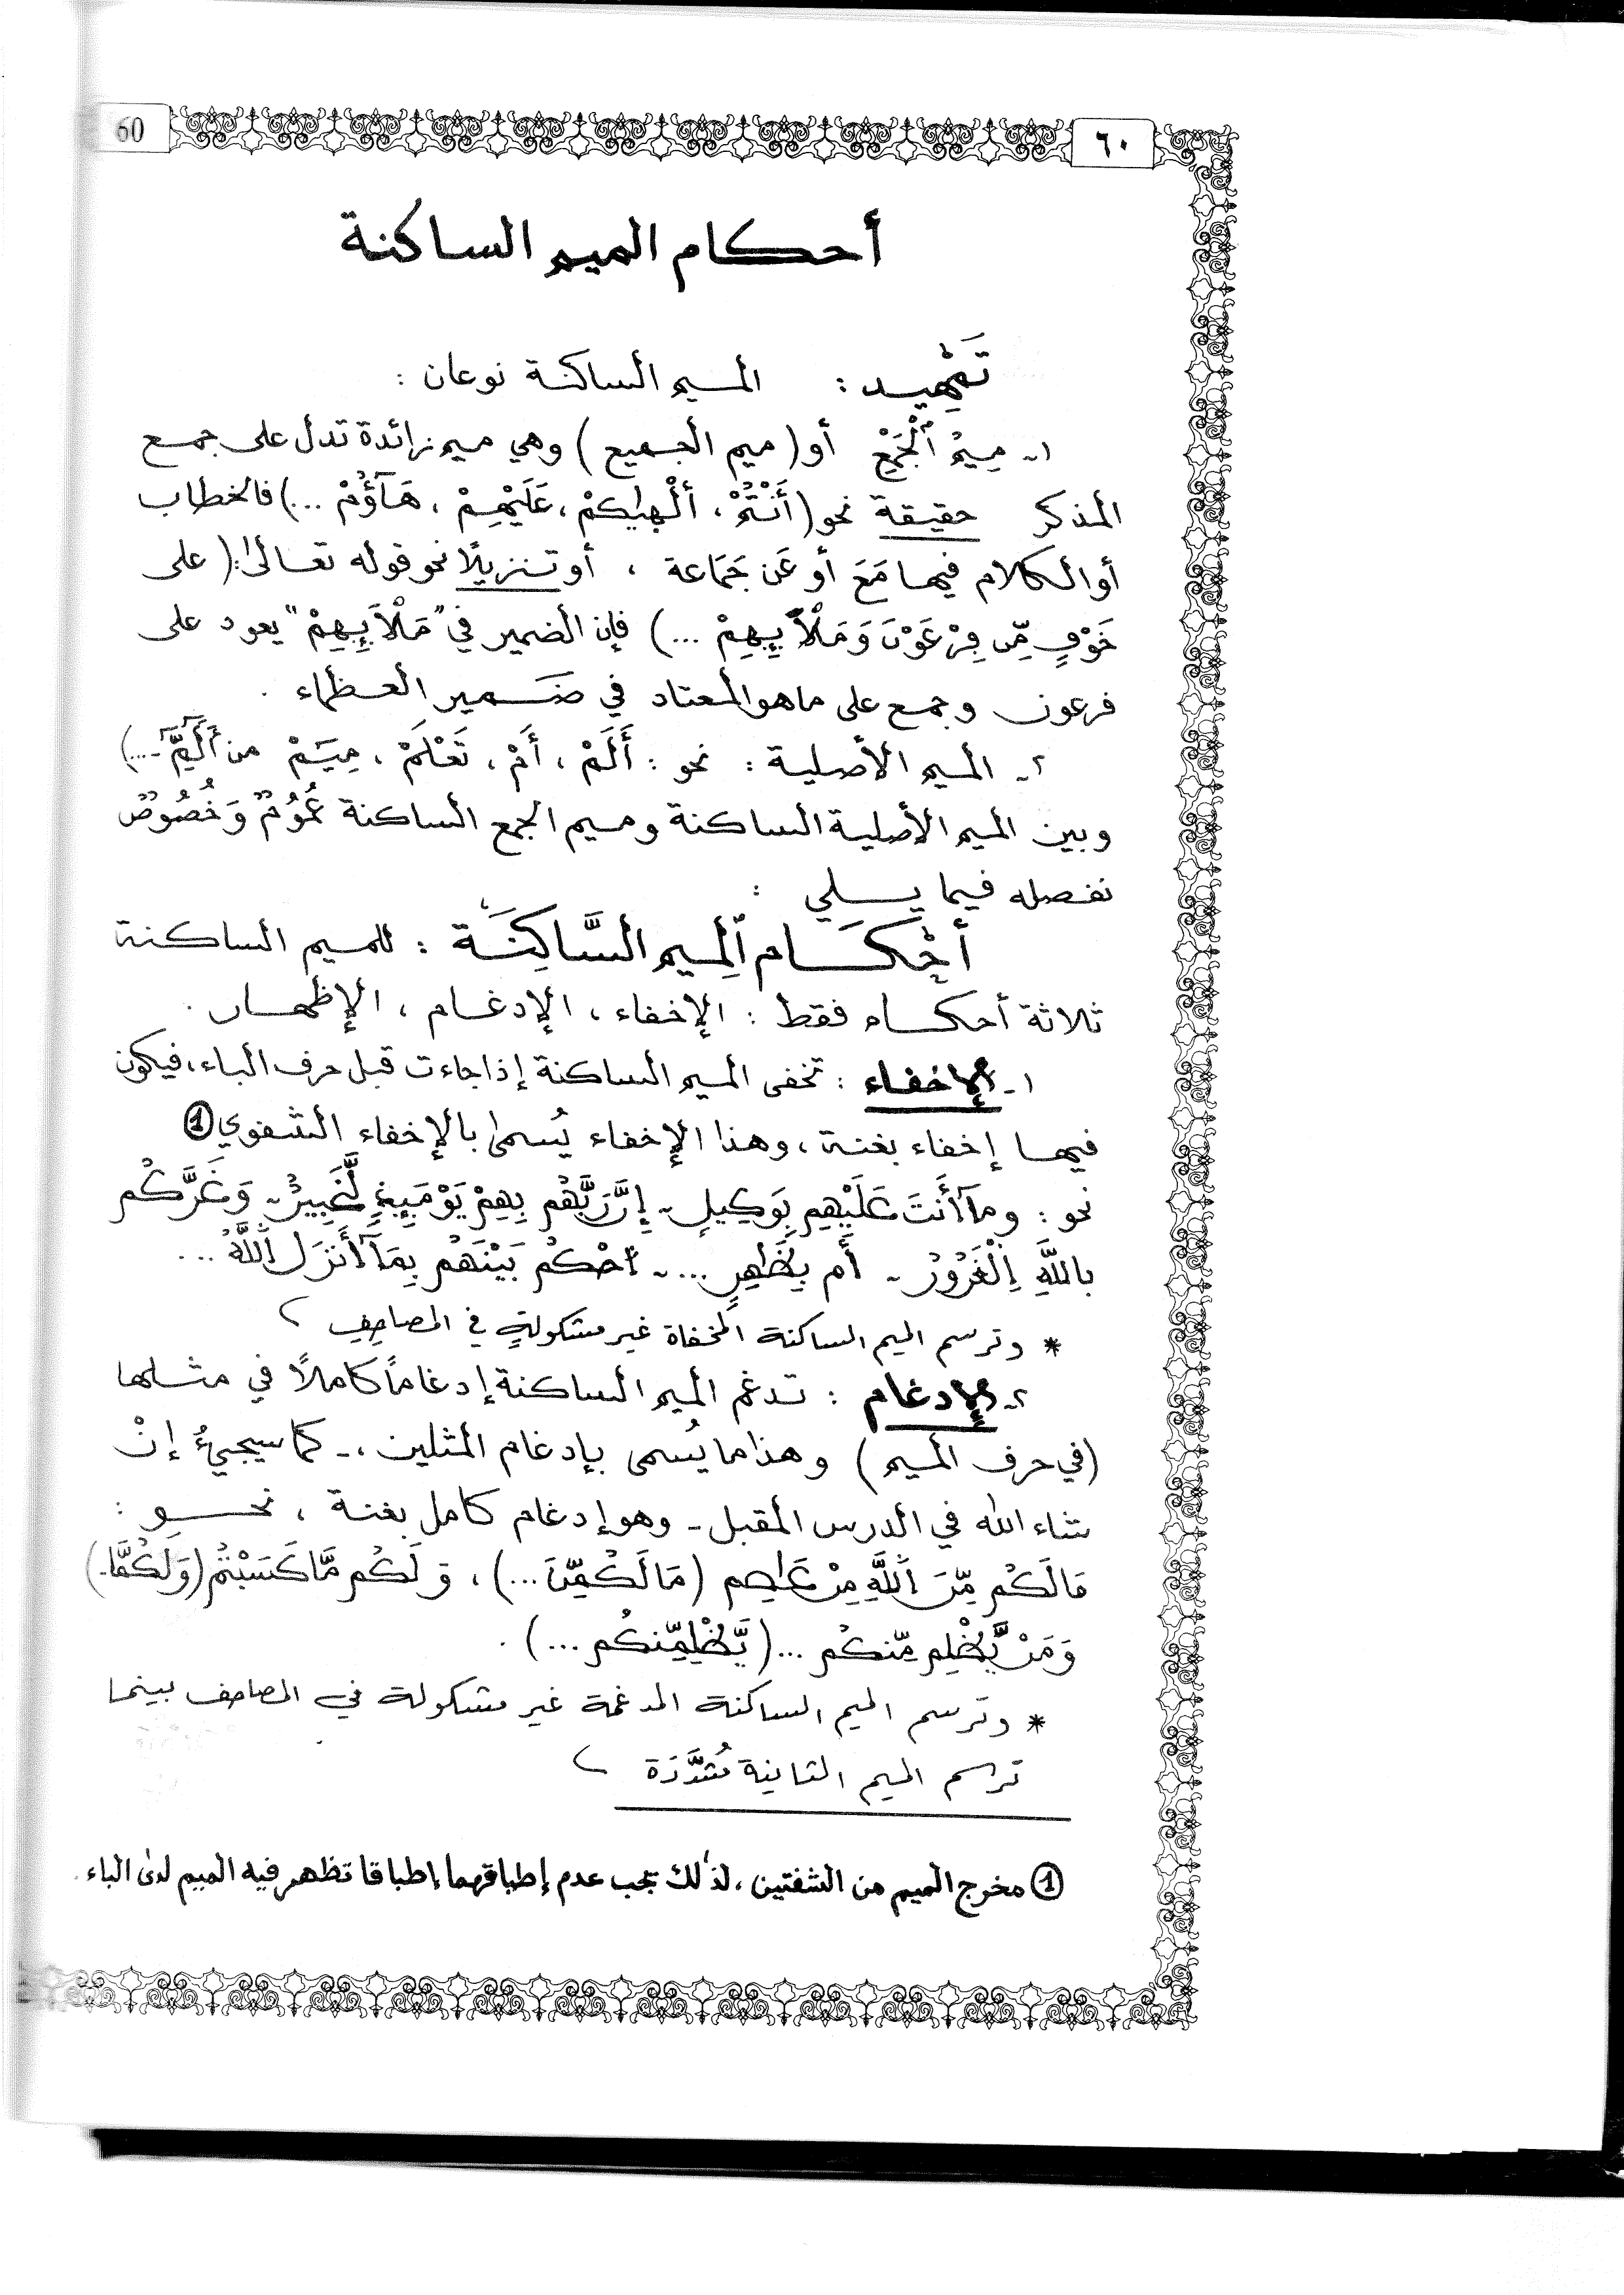 60
٦٠
أحكام الميم الساكنة
تَمْهِيد : الميم الساكنة نوعان :
١ـ مِيمُ ٱلْجَمْعِ أو (ميم الجميع) وهي ميم زائدة تدل على جمع
المذكر حقيقة نحو (أَنْتُمْ ، أَلْهٰيكُمْ ، عَلَيْهِمْ ، هَآؤُمْ ...) فالخطاب
أو الكلام فيها مَعَ أو عَن جَمَاعة ، أو تنزيلًا نحو قوله تعالىٰ : (على
خَوْفٍ مِّن فِرْعَوْنَ وَمَلَإِيْهِمْ ...) فإن الضمير في "مَلَإِيْهِمْ" يعود على
فرعون وجمع على ما هو المعتاد في ضَمير العظماء .
٢ـ الميم الأصلية : نحو : أَلَمْ ، أَمْ ، تَعْلَمْ ، مِيَمْ من أَلَمِّ ...)
وبين الميم الأصلية الساكنة وميم الجمع الساكنة عُمُومٌ وَخُصُوصٌ
نفصله فيما يلي :
أَحْكَام ٱلْمِيم السَّاكِنَة : للميم الساكنة
ثلاثة أحكام فقط : الإخفاء ، الإدغام ، الإظهار .
١ـ الإخفاء : تخفى الميم الساكنة إذا جاءت قبل حرف الباء ، فيكون
فيها إخفاء بغنة ، وهذا الإخفاء يُسمىٰ بالإخفاء الشفوي ①
نحو : وَمَآ أَنتَ عَلَيْهِم بِوَكِيلٍ ـ إِنَّ رَبَّهُم بِهِمْ يَوْمَئِذٍ لَّخَبِيرٌ ـ وَغَرَّكُم
بِاللَّهِ اِلْغَرُورُ ـ أَم بِظَٰهِرٍ ... ـ ٱحْكُم بَيْنَهُم بِمَآ أَنزَلَ اَللَّهُ ...
* وترسم الميم الساكنة المخفاة غير مشكولةٍ في المصاحِفِ
٢ـ الإدغام : تدغم الميم الساكنة إدغاماً كاملًا في مثلها
(في حرف الميم) وهذا ما يُسمى بإدغام المثلين ، ـ كما سيجيءُ إنْ
شاء الله في الدرس المقبل ـ وهو إدغام كامل بغنة ، نحو :
مَا لَكُم مِّنَ اَللَّهِ مِنْ عَاصِم (مَا لَكُمِّنَ ...) ، وَلَكُم مَّا كَسَبْتُم (وَلَكُمَّا.)
وَمَنْ يَّظْلِم مِّنكُم ... (يَّظْلِمِّنكُم ...) .
* وترسم الميم الساكنة المدغمة غير مشكولة في المصاحف بينما
ترسم الميم الثانية مُشَدَّدَة
① مخرج الميم من الشفتين ، لذٰلك يجب عدم إطباقهما إطباقا تظهر فيه الميم لدىٰ الباء .